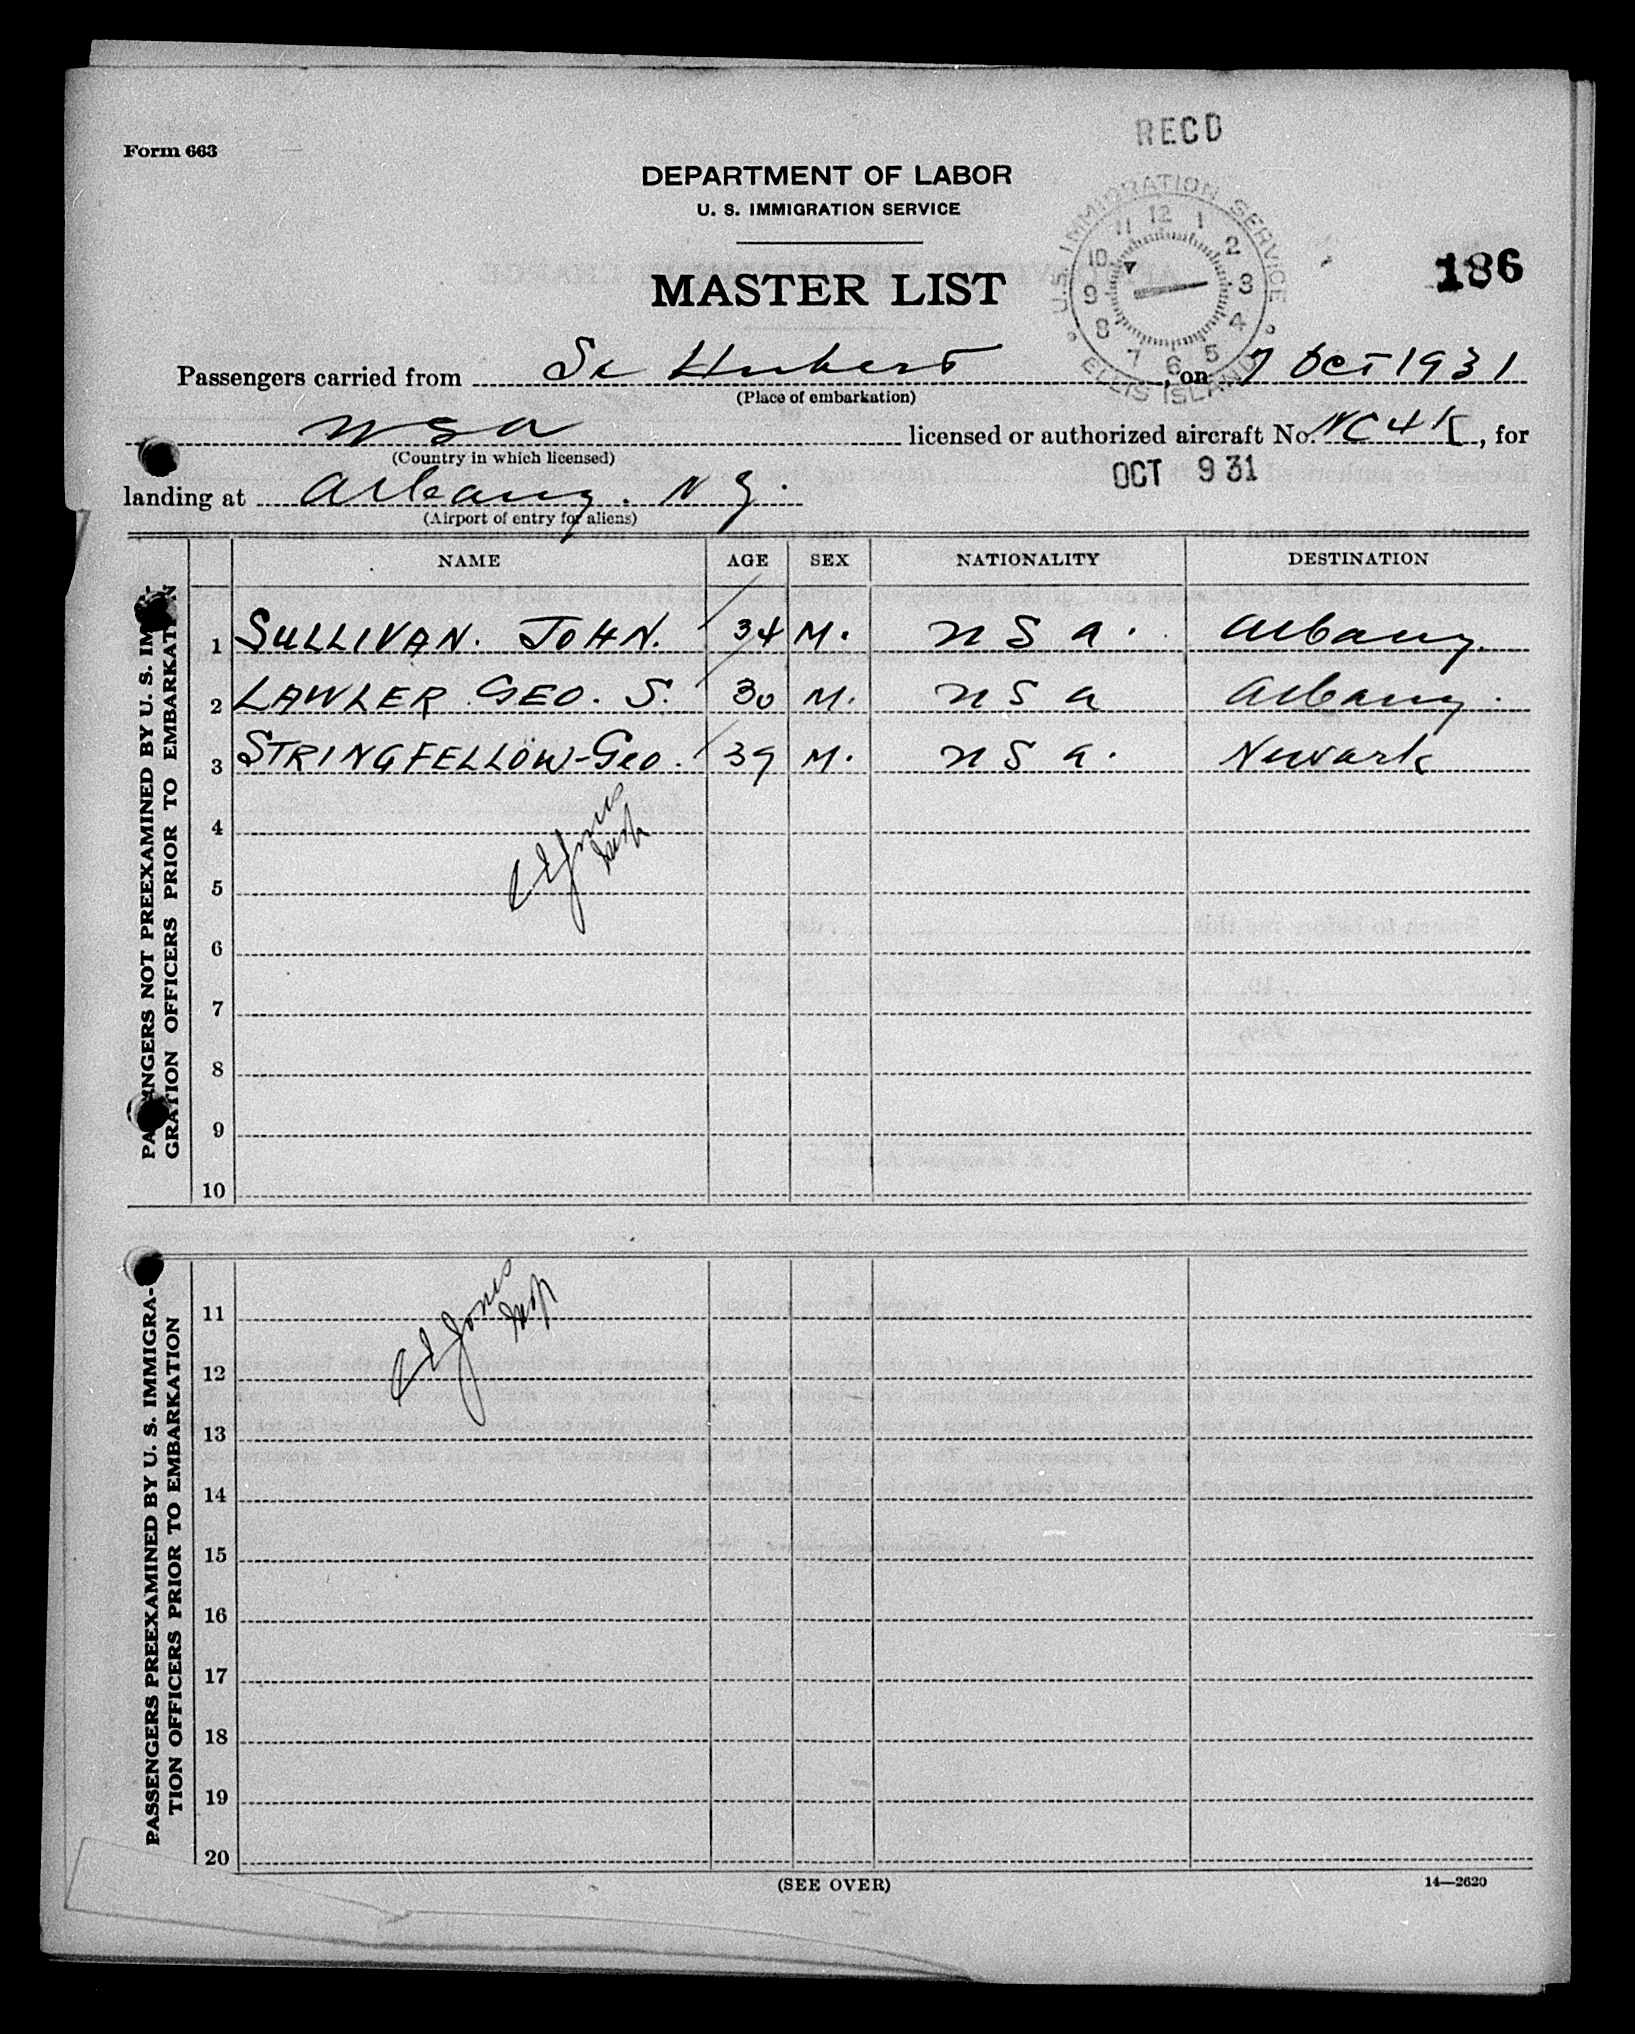 Form 663
RECD
DEPARTMENT OF LABOR
U. S. IMMIGRATION SERVICE
U.S. IMMIGRATION SERVICE
12 1 2 3 4 5 6 7 8 9 10 11
ELLIS ISLAND
186
MASTER LIST
Passengers carried from St Hubert, on 7 Oct 1931
(Place of embarkation)
USA licensed or authorized aircraft No. NC4K, for
(Country in which licensed)
OCT 9 31
landing at Albany. N Y.
(Airport of entry for aliens)
NAME AGE SEX NATIONALITY DESTINATION
PASSENGERS NOT PREEXAMINED BY U. S. IMMI-
GRATION OFFICERS PRIOR TO EMBARKATION
1 SULLIVAN. JOHN. 34 M. U S A. Albany.
2 LAWLER GEO. S. 30 M. U S A Albany.
3 STRINGFELLOW-Geo. 39 M. U S A. Newark
4
5
6
7
8
9
10
Jones
Insp
PASSENGERS PREEXAMINED BY U. S. IMMIGRA-
TION OFFICERS PRIOR TO EMBARKATION
Jones
Insp
11
12
13
14
15
16
17
18
19
20
(SEE OVER)
14—2620